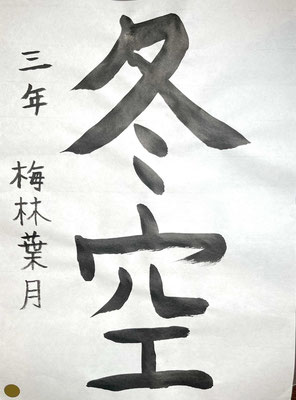 冬空
三年 梅林葉月